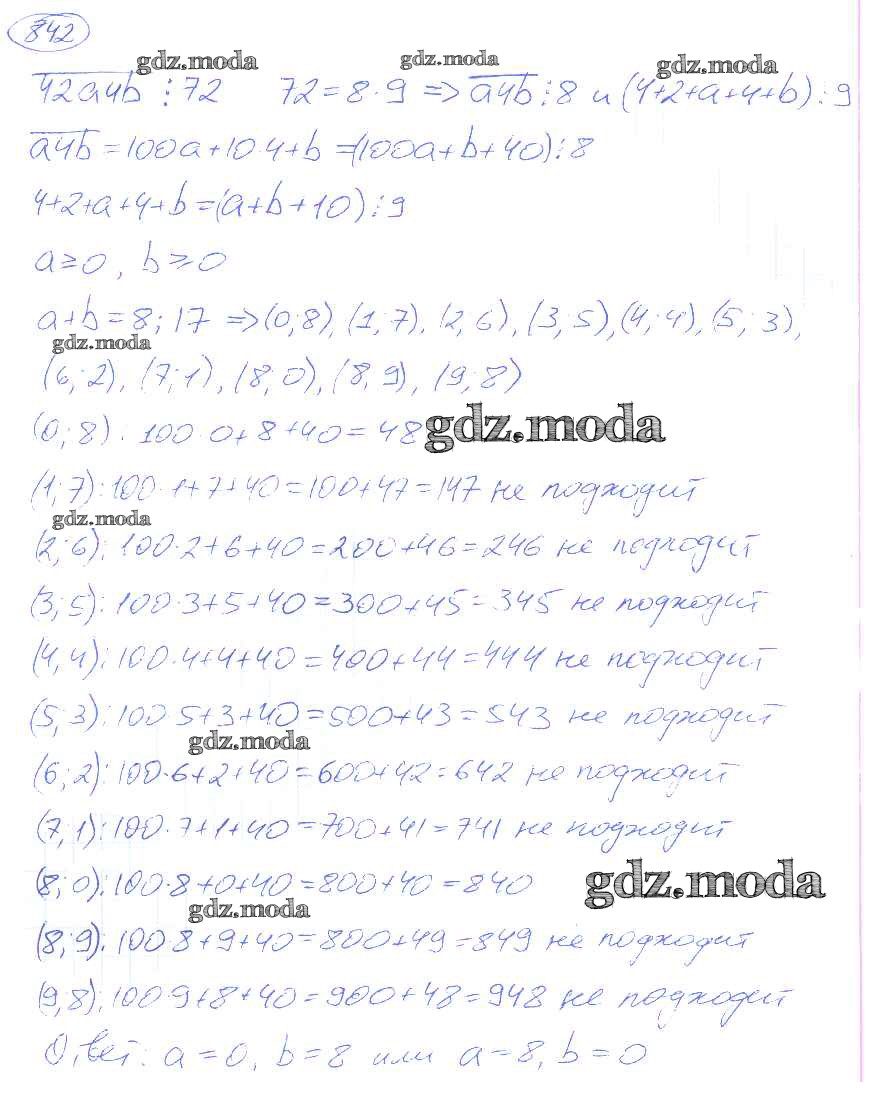 842
gdz.moda gdz.moda gdz.moda
42a4b ⋮ 72 72 = 8·9 => a4b ⋮ 8 и (4+2+a+4+b) ⋮ 9
a4b = 100a+10·4+b =(100a+b+40) ⋮ 8
4+2+a+4+b=(a+b+10) ⋮ 9
a≥0, b≥0
a+b=8; 17 =>(0;8), (1;7), (2;6), (3;5), (4;4), (5;3),
gdz.moda
(6;2), (7;1), (8;0), (8;9), (9;8)
(0;8): 100·0+8+40=48
gdz.moda
(1;7):100·1+7+40=100+47=147 не подходит
gdz.moda
(2;6): 100·2+6+40=200+46=246 не подходит
(3;5): 100·3+5+40=300+45=345 не подходит
(4,4):100·4+4+40=400+44=444 не подходит
(5;3):100 5+3+40=500+43=543 не подходит
gdz.moda
(6;2):100·6+2+40=600+42=642 не подходит
(7,1):100·7+1+40=700+41=741 не подходит
(8;0):100·8+0+40=800+40=840
gdz.moda
gdz.moda
(8;9):100 8+9+40=800+49=849 не подходит
(9;8):100 9+8+40=900+48=948 не подходит
Ответ: a=0, b=8 или a=8, b=0